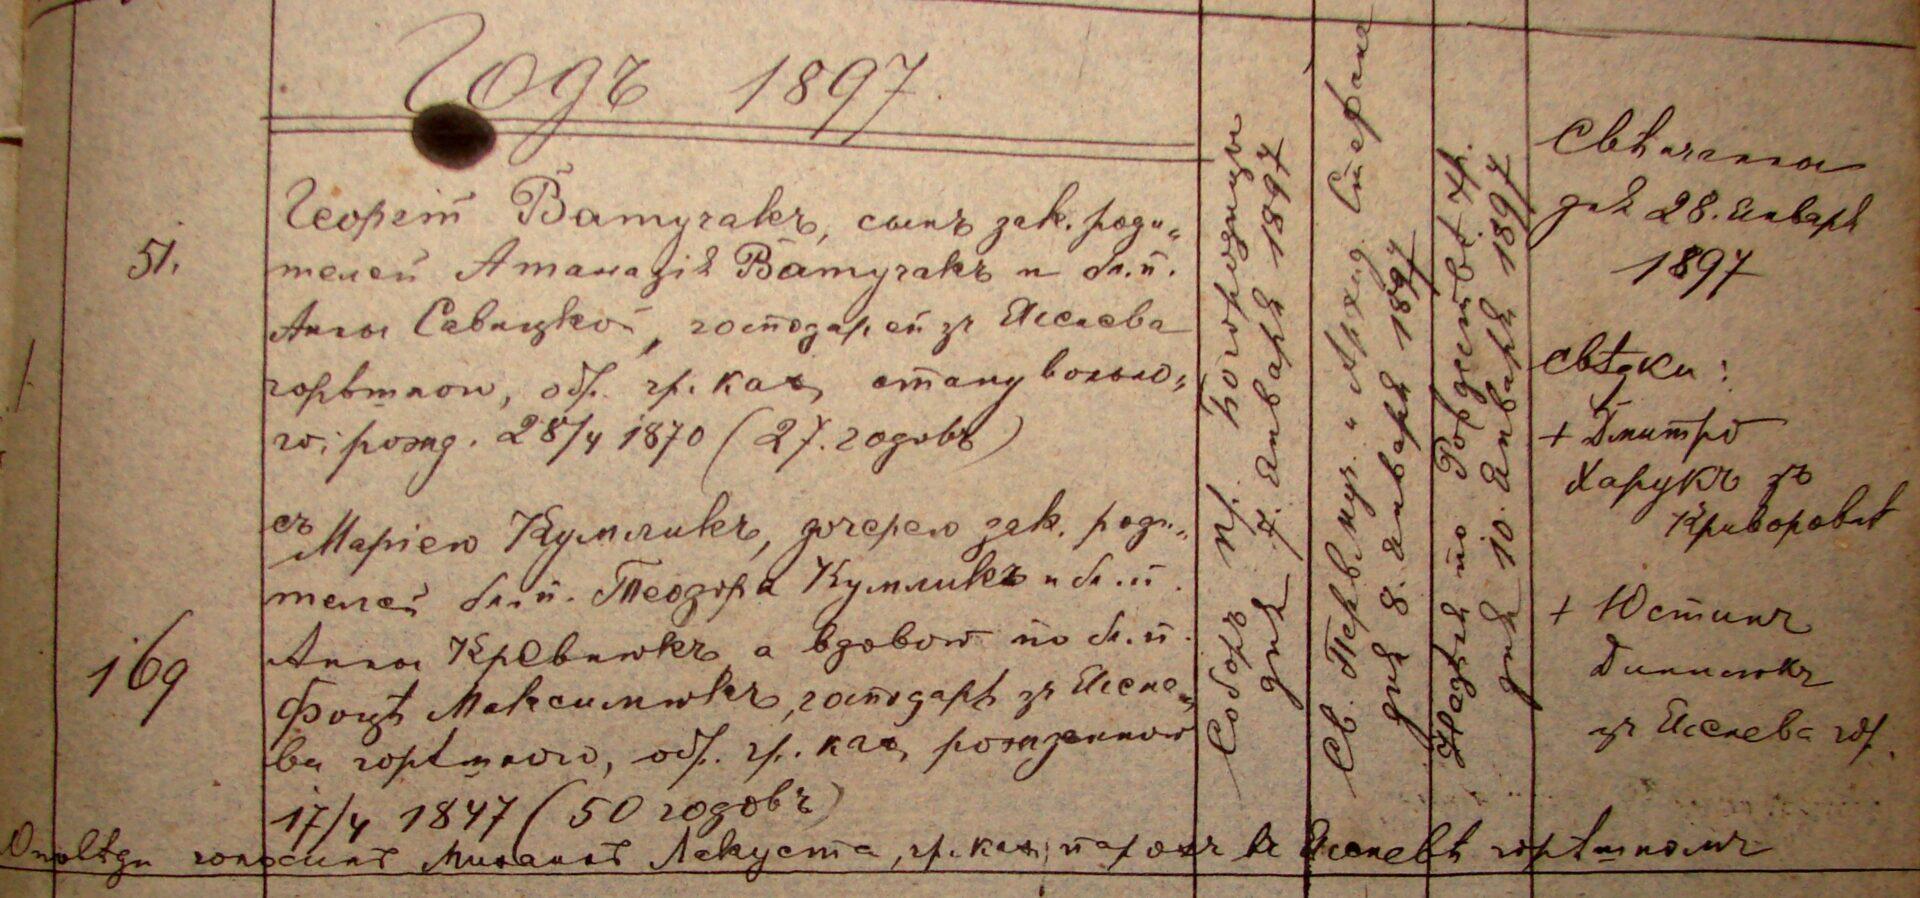 Годъ 1897.
51.
Георгій Ватучакъ, сынъ зак. роди„
телей Атаназія Ватучакъ и бл. п.
Анны Савицкой, господарей зъ Яснева
горѣшного, обр. гр. кат, стану вольно„
го; рожд. 28/4 1870 (27. годовъ)
169
съ Маріею Кумликъ, дочерею зак. роди„
телей бл. п. Теодора Кумликъ и бл. п.
Анны Кревнюкъ а вдовою по бл. п.
Фоцѣ Максимюкъ, господарѣ зъ Ясне„
ва горѣшного, обр. гр. кат, рожденною
17/4 1847 (50 годовъ)
Оповѣди голосилъ Михаилъ Лакуста, гр. кат, парохъ въ Ясневѣ горѣшномъ
Соборъ пр. Богородицы
дня 7. Января 1897
Св. Первмуч. и Архид. Стефана
дня 8. Января 1897
Недѣля по Рождествѣ Хр.
дня 10. Января 1897
Свѣнчаны
дня 28. Января
1897
Свѣдки:
+ Дмитро
Харукъ зъ
Криворовнѣ
+ Юстинъ
Дининюкъ
зъ Яснева гор.